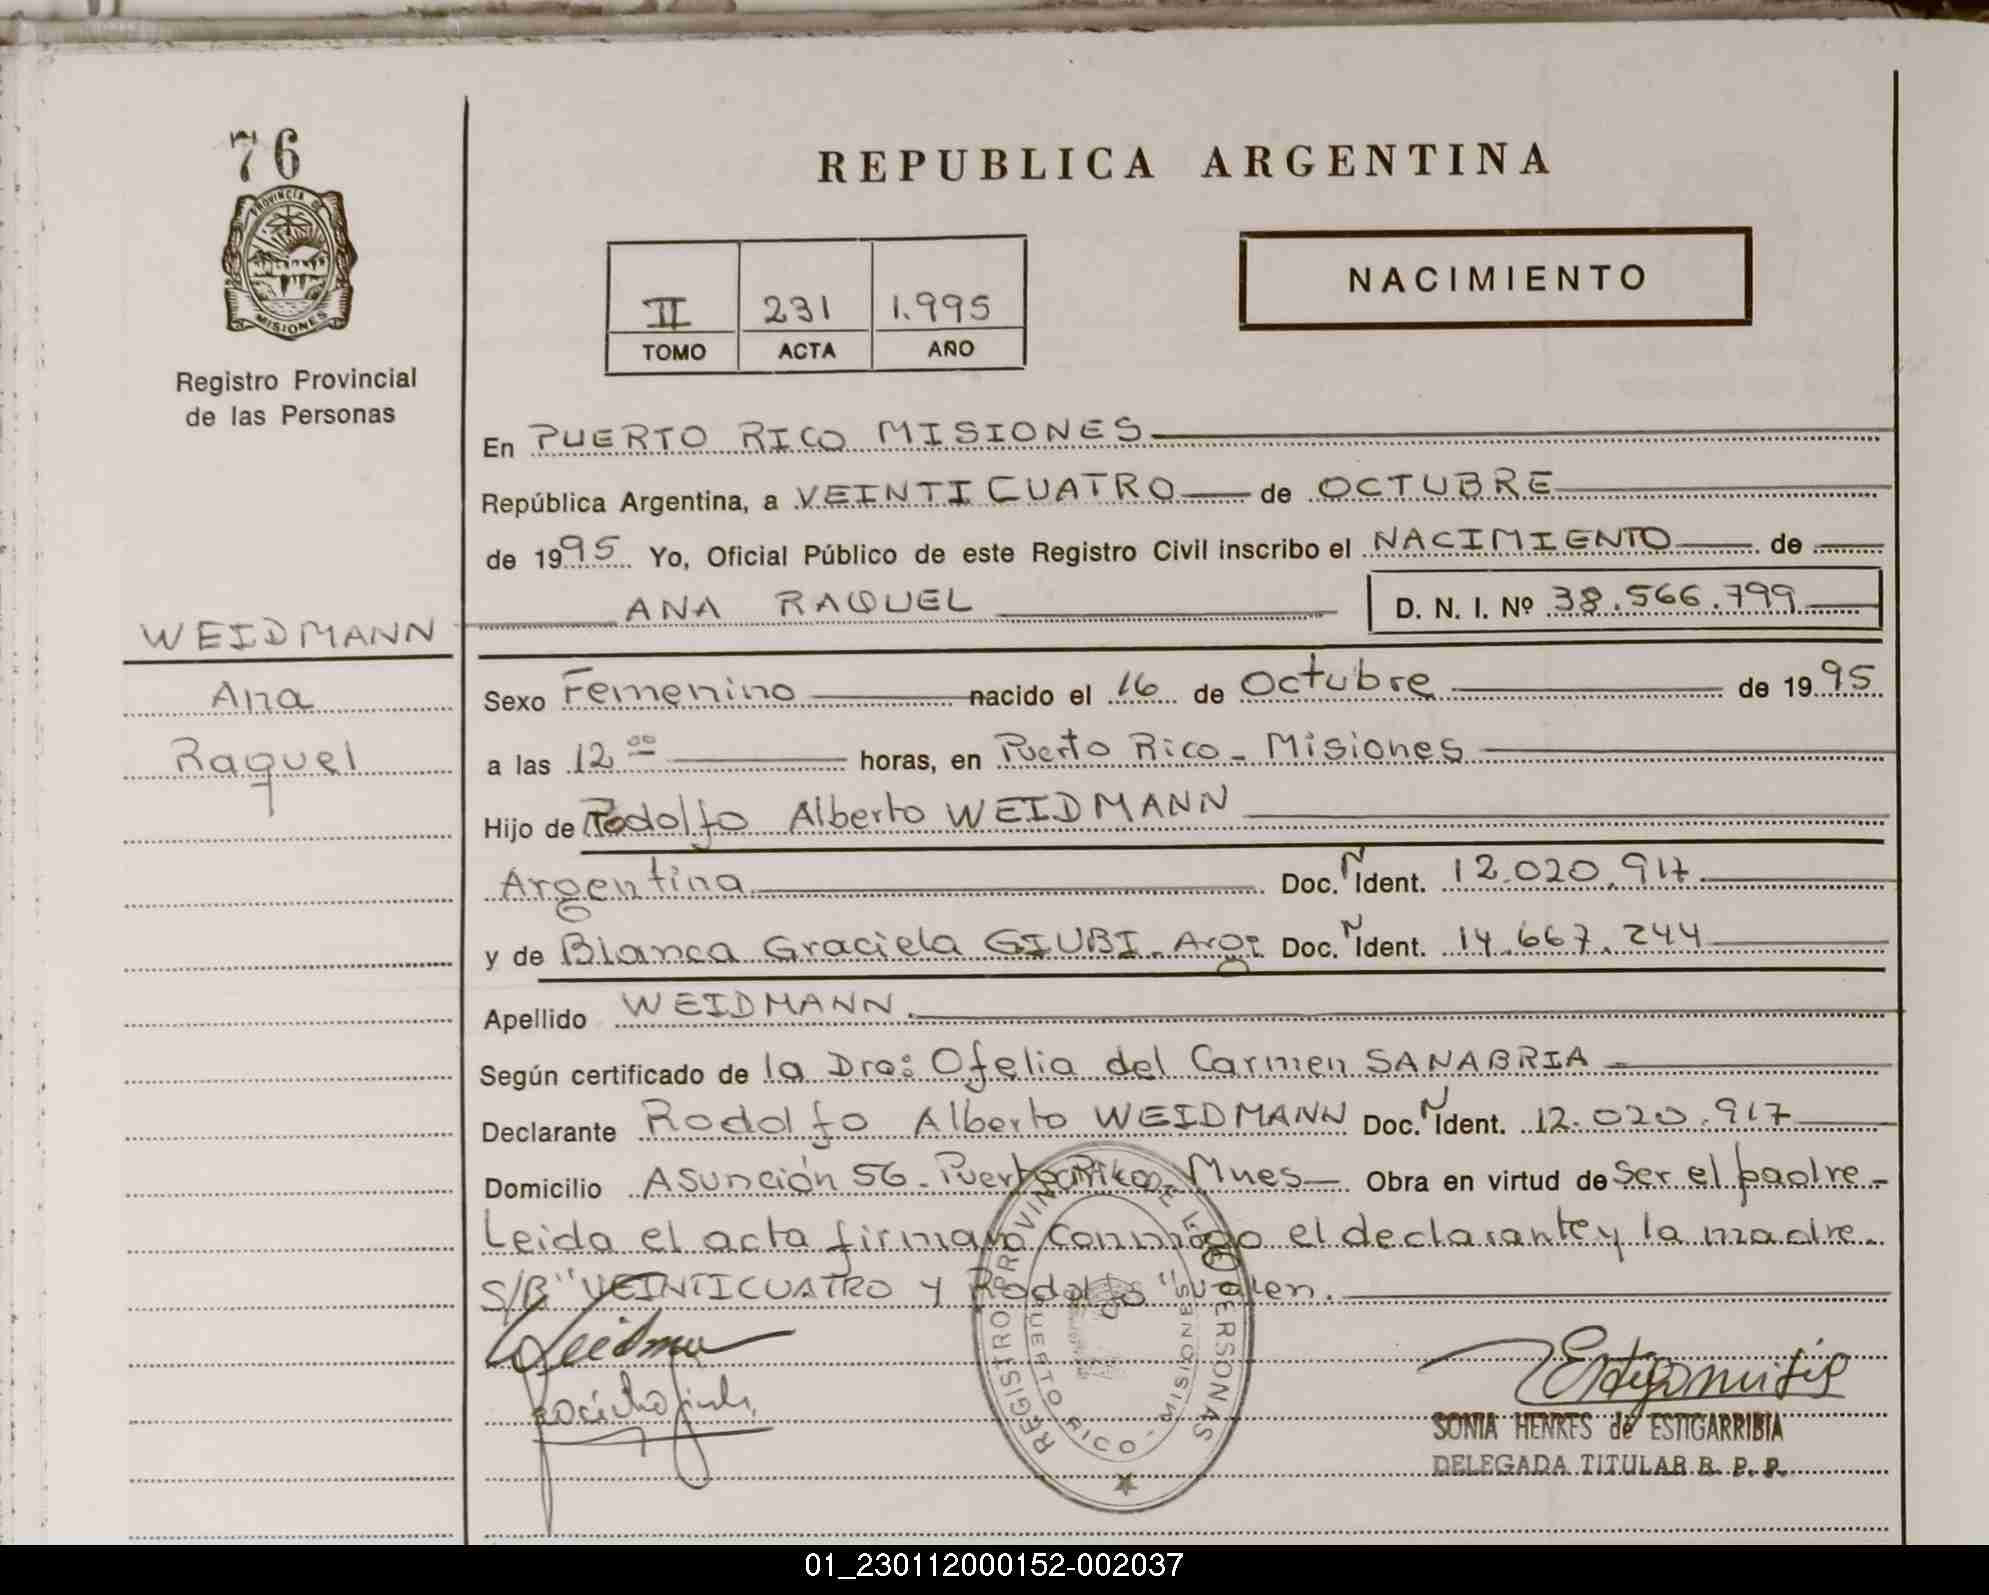 76
PROVINCIA DE
MISIONES
Registro Provincial
de las Personas
WEIDMANN
Ana
Raquel
REPUBLICA ARGENTINA
NACIMIENTO
II 231 1.995
TOMO ACTA AÑO
En PUERTO RICO MISIONES
República Argentina, a VEINTICUATRO de OCTUBRE
de 1995 Yo, Oficial Público de este Registro Civil inscribo el NACIMIENTO de
ANA RAQUEL D. N. I. Nº 38.566.799
Sexo Femenino nacido el 16 de Octubre de 1995
a las 12 00 horas, en Puerto Rico - Misiones
Hijo de Rodolfo Alberto WEIDMANN
Argentina Doc. N Ident. 12.020.917
y de Blanca Graciela GIUBI. Arg: Doc. N Ident. 14.667.244
Apellido WEIDMANN.
Según certificado de la Dra: Ofelia del Carmen SANABRIA
Declarante Rodolfo Alberto WEIDMANN Doc. N Ident. 12.020.917
Domicilio Asunción 56 - Puerto Rico - Mnes Obra en virtud de ser el padre -
Leida el acta firman conmigo el declarante y la madre.
S/B "VEINTICUATRO y Rodolfo" valen.
REGISTRO PROVINCIAL DE LAS PERSONAS
PUERTO RICO - MISIONES
SONIA HENKES de ESTIGARRIBIA
DELEGADA TITULAR R. P. P.
01_230112000152-002037